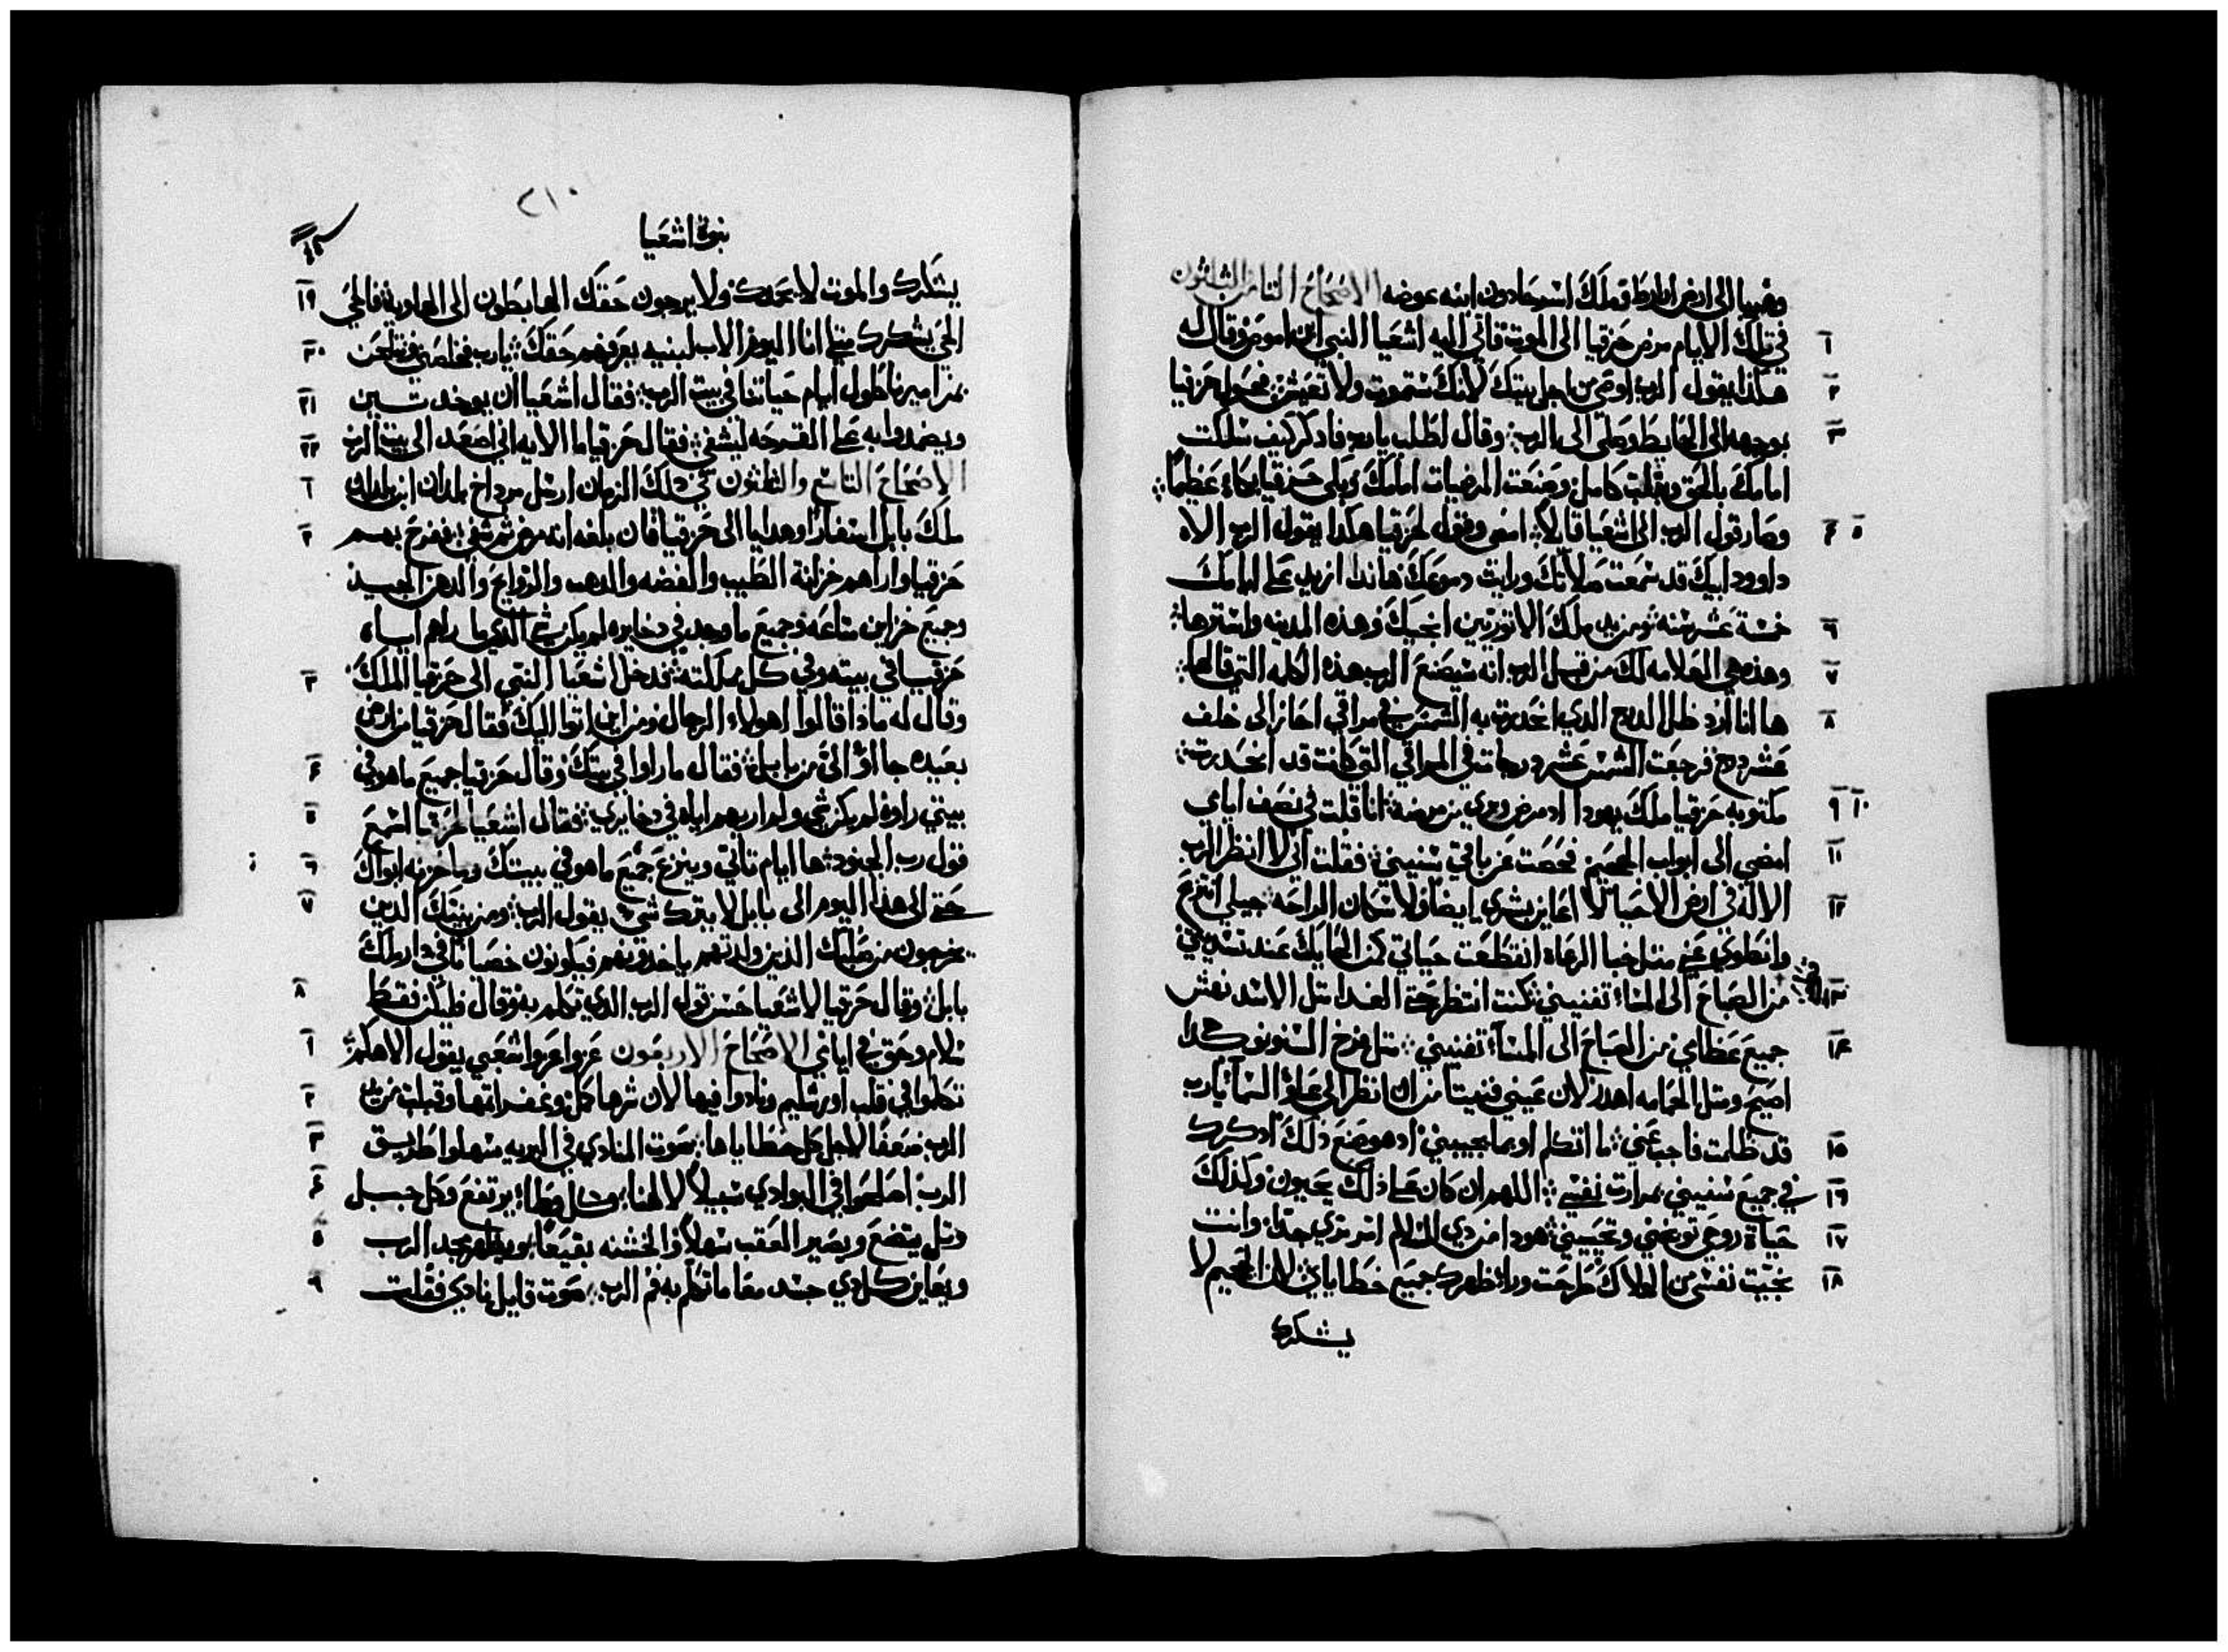 وهربا الى ارض اراراط وملك اسرحادون ابنه عوضه الاصحاح الثامن الثلثون
١ في تلك الايام مرض حزقيا الى الموت فاتى اليه اشعيا النبي ابن اموص وقال له
٢ هكذا يقول الرب اوصي من اجل بيتك لانك ستموت ولا تعيش فحول حزقيا
٣ بوجهه الى الحايط وصلى الى الرب وقال اطلب يارب فادكر كيف سلكت
امامك بالحق وبقلب كامل وصنعت المرضيات امامك وبكى حزقيا بكاء عظيما
٥ ٤ وصار قول الرب الى اشعيا قايلا امضي وقول لحزقيا هكذا يقول الرب الاه
داوود ابيك قد سمعت صلاتك ورايت دموعك هانذا ازيد على ايامك
٦ خمسة عشر سنه ومن يد ملك الاتوريين انجيك وهذه المدينه واسترها
٧ وهذه هي العلامه لك من قبل الرب انه سيصنع الرب هذه الكلمه التي قالها
٨ ها انا ارد ظل الدرج الذي انحدرت به الشمس في مراقي احاز الى خلف
عشر درج فرجعت الشمس عشر درجات في المراقي التي كانت قد انحدرت
٩ ١٠ مكتوبه حزقيا ملك يهودا اد مرض وبري من مرضه انا قلت في نصف ايامي
١١ امضي الى ابواب الجحيم فحصت عن باقي سنيني فقلت اني لا انظر الرب
١٢ الاله في ارض الاحيا لا اعاين بشري ايضا ولا سكان الراحه جيلي انتزع
وانطوي عني مثل خبا الرعاه انقطعت حياتي كمن الحايك عند تسديتي
١٣ من الصباح الى المساء تفنيني كنت انتظر حتى الغدا مثل الاسد نفس
١٤ جميع عظامي من الصباح الى المساء تفنيني مثل فرخ السنونو هكدا
اصيح ومثل الحمامه اهدر لان عيني فنيتا من ان انظر الى علو السماء يارب
١٥ قد ظلمت فاجب عني ما اتكلم او بما يجيبني اد هو صنع ذلك ادكرك
١٦ في جميع سنيني بمرارت نفسي اللهم ان كان على ذلك يحيون وكذلك
١٧ حياة روحي توبخني وتحييني هودا مرارتي السلام امر مدي جدا وانت
١٨ نجيت نفسي من الهلاك طرحت ورا ظهرك جميع خطاياي لان الجحيم لا
يشكرك
٢١٠
نبوة اشعيا
يشكرك والموت لا يحمدك ولا يرجون حقك الهابطون الى الهاويه فالحي ١٩
الحي يشكرك مثل انا اليوم الاب لبنيه يعرفهم حقك يارب فخلصني ونلحن ٢٠
بمزاميرنا طول ايام حياتنا في بيت الرب فقال اشعيا ان يوخد تين ٢١
ويضمدوا به على القرحه ليشفى فقال حزقيا ما الايه اني اصعد الى بيت الرب ٢٢
الاصحاح التاسع والثلثون في ذلك الزمان ارسل مرداخ بلدان ابن بلدان ١
ملك بابل اسفارا وهدايا الى حزقيا فان بلغه انه مرض ثم شفي ففرح بهم ٢
حزقيا واراهم خزانة الطيب والفضه والدهب والروايح والدهن الجيد
وجميع خزاين متاعه وجميع ما وجد في دخايره لم يكن شي الدي ما راهم اياه
حزقيا في بيته وفي كل مملكته فدخل اشعيا النبي الى حزقيا الملك ٣
وقال له ماذا قالوا اهولاء الرجال ومن اين اتوا اليك فقال حزقيا من ارض
بعيده جااوا الي من بابل فقال ما راوا في بيتك وقال حزقيا جميع ما هو في ٤
بيتي راوه لم يكن شي ولم اريهم اياه في دخايري فقال اشعيا لحزقيا اسمع ٥
قول رب الجنود ها ايام تاتي وينزع جميع ما هو في بيتك وما خزنه ابواك ٦
حتى الى هذا اليوم الى بابل لا يترك شي يقول الرب ومن بنيك الدين ٧
يخرجون من صلبك الذين ولدتهم ياخدونهم فيكونون خصيانا في دار ملك
بابل وقال حزقيا لاشعيا حسن قول الرب الدي تكلم به وقال فليكن فقط ٨
سلام وحق في ايامي الاصحاح الاربعون عزوا عزوا شعبي يقول الاهكم ١
تكلموا في قلب اورشليم ونادوا فيها لان شرها كمل وغفر اثمها وقبلت من يد ٢
الرب ضعفا لاجل كل خطاياها صوت المنادي في البريه سهلوا طريق ٣
الرب اصلحوا في البوادي سبيلا لالهنا كل وطاء يرتفع وكل جبل ٤
وتل يتضع ويصير العقب سهلا والخشنه بقيعا ويظهر مجد الرب ٥
ويعاين كل دي جسد معا ما تكلم به فم الرب صوت قايل نادي فقلت ٦